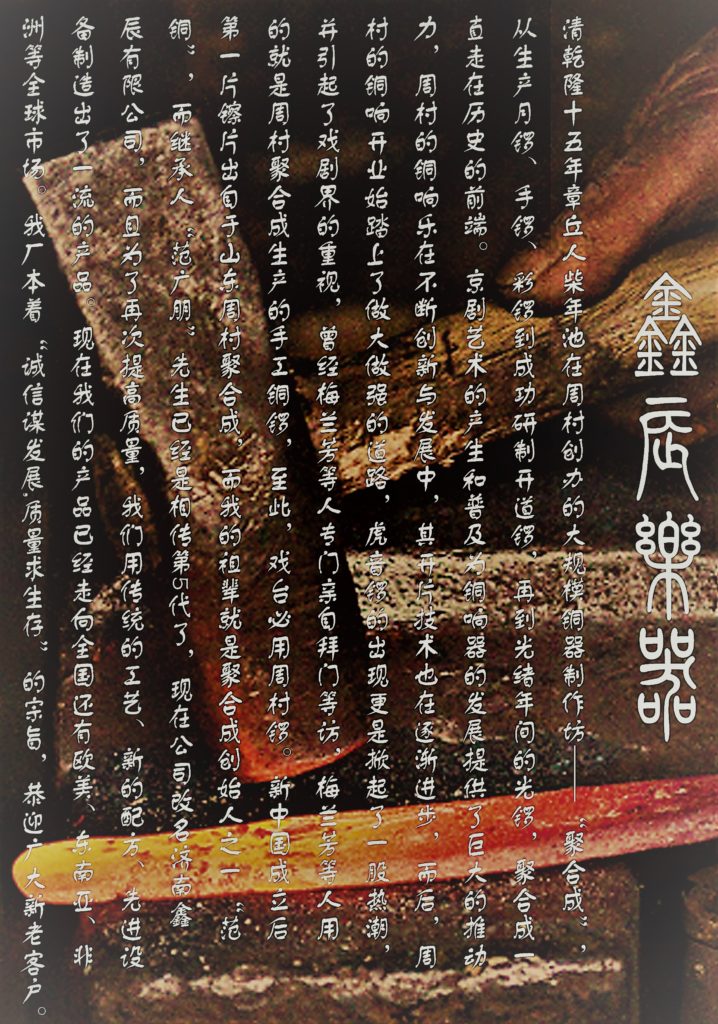 鑫辰樂器
清乾隆十五年章丘人柴年池在周村创力的大规模铜器制作坊——“聚合成”，
从生产月锣、手锣、彩锣到成功研制开道锣，再到光绪年间的光锣，聚合成一
直走在历史的前端。京剧艺术的产生和普及为铜响器的发展提供了巨大的推动
力，周村的铜响乐在不断创新与发展中，其开片技术也在逐渐进步，而后，周
村的铜响开业始踏上了做大做强的道路，虎音锣的出现更是掀起了一股热潮，
并引起了戏剧界的重视，曾经梅兰芳等人专门亲自拜门等访，梅兰芳等人用
的就是周村聚合成生产的手工铜锣，至此，戏台必用周村锣。新中国成立后
第一片镲片出自于山东周村聚合成，而我的祖辈就是聚合成创始人之一“范
铜”，而继承人“范广朋”先生已经是相传第5代了，现在公司改名济南鑫
辰有限公司，而且为了再次提高质量，我们用传统的工艺、新的配方、先进设
备制造出了一流的产品。现在我们的产品已经走向全国还有欧美、东南亚、非
洲等全球市场。我厂本着“诚信谋发展.质量求生存”的宗旨，恭迎广大新老客户。